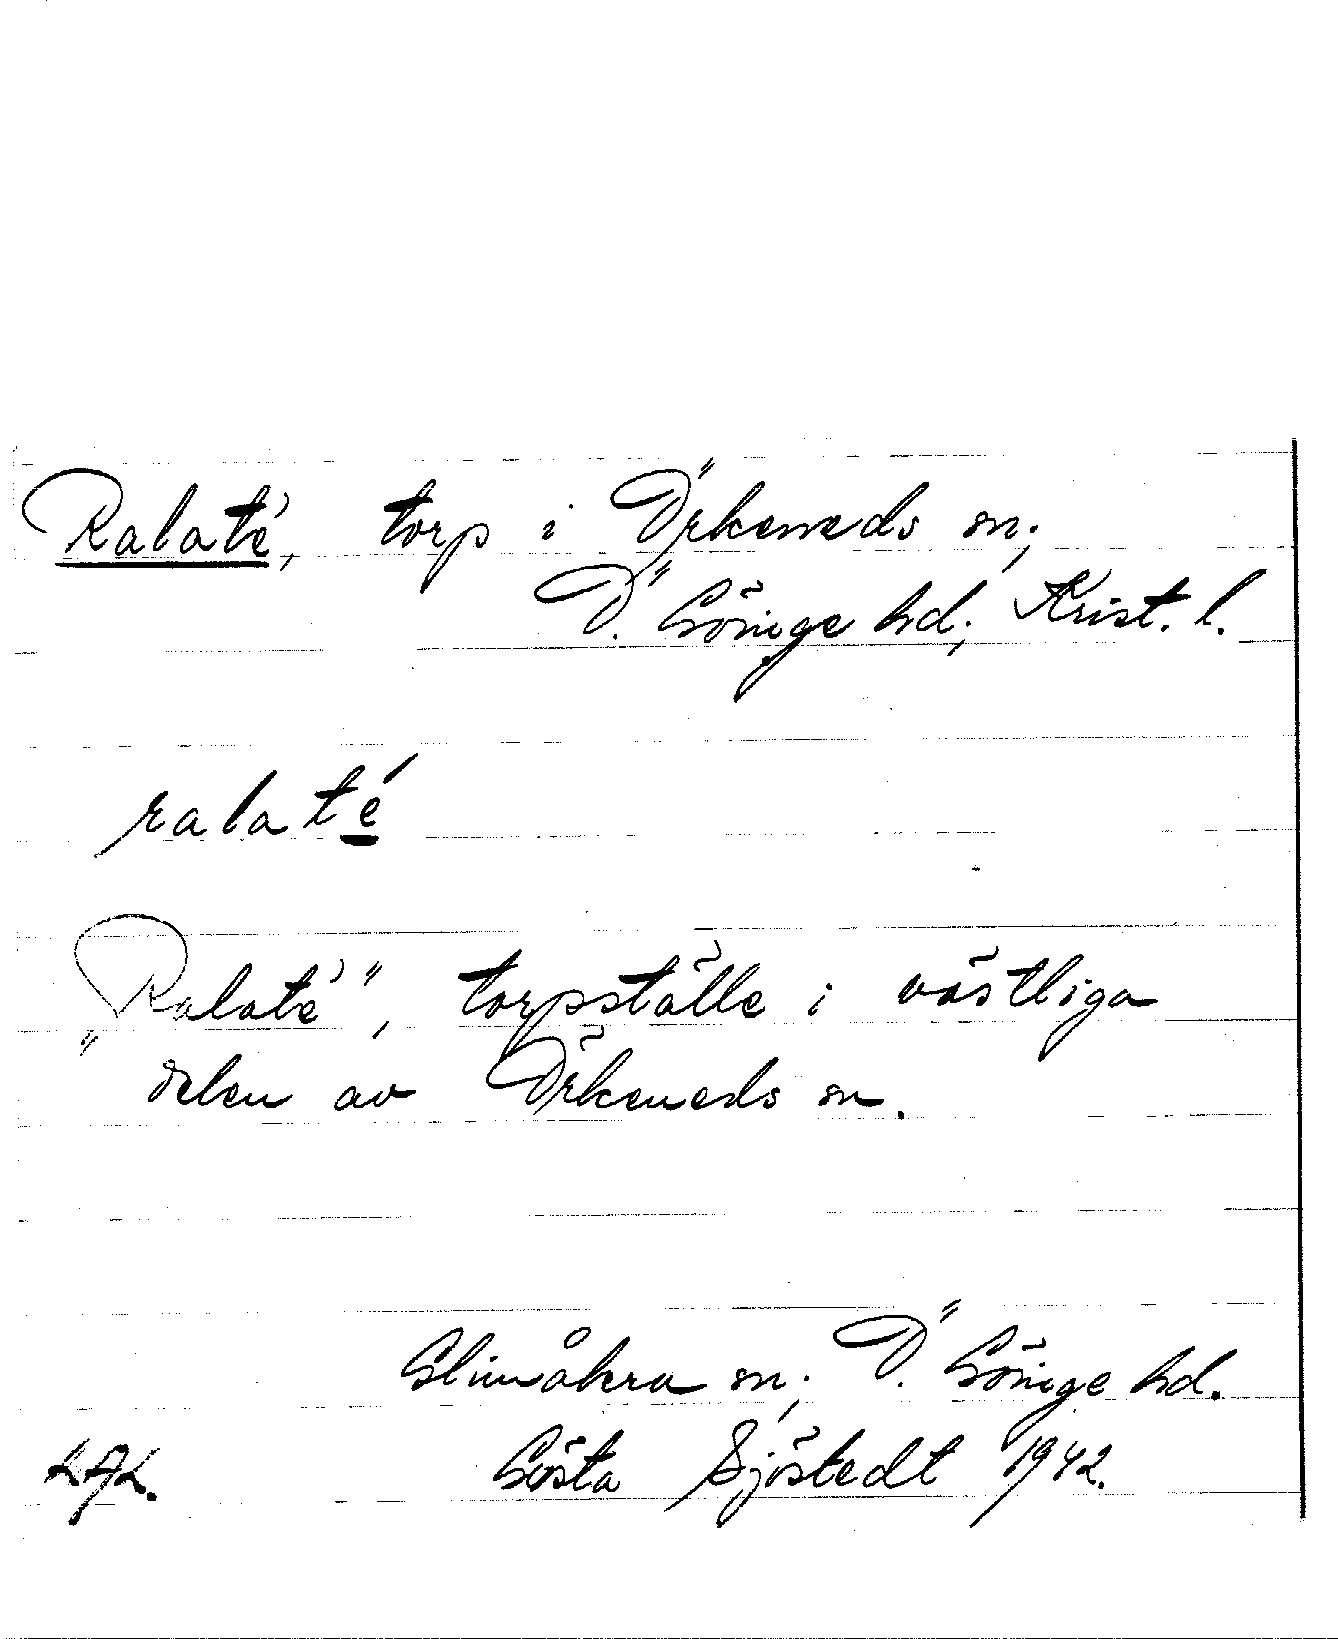 Ralaté, torp i Örkeneds sn;
Ö. Göinge hd; Krist. l.
ralaté
"Ralaté", torpställe i västliga
delen av Örkeneds sn.
Glimåkra sn; Ö. Göinge hd.
Gösta Sjöstedt 1942.